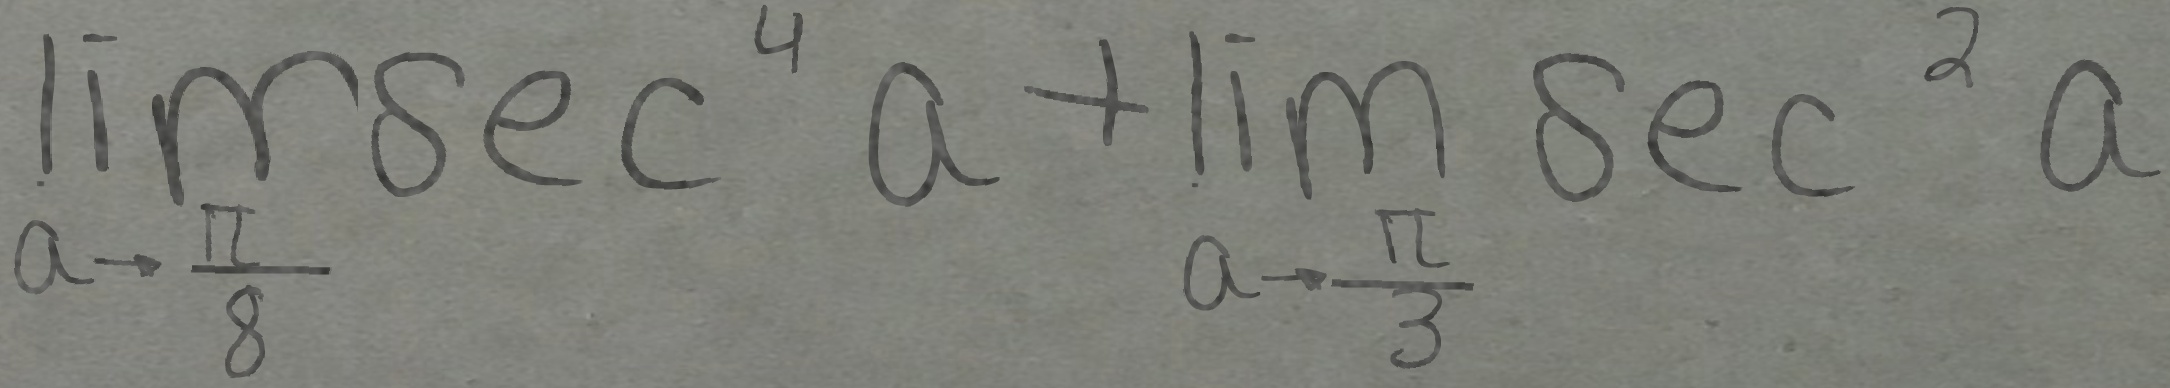 \lim_{a \to \frac{\pi}{8}} \sec^4 a + \lim_{a \to \frac{\pi}{3}} \sec^2 a